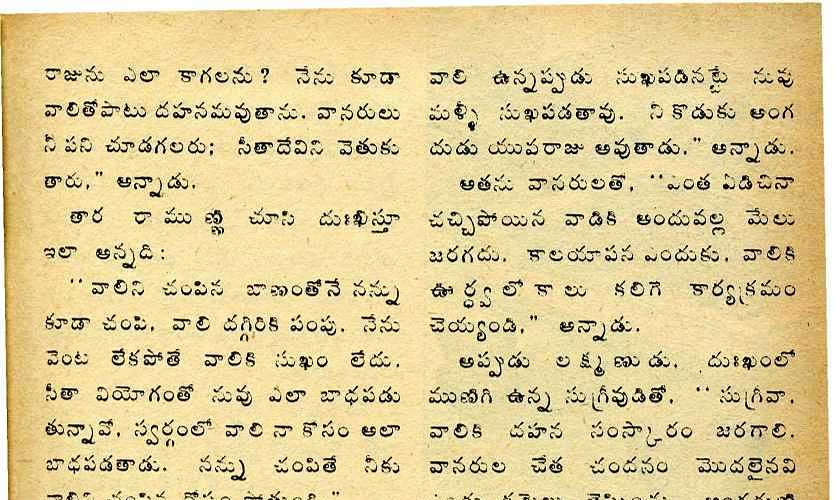 రాజును ఎలా కాగలను? నేను కూడా
వాలితోపాటు దహనమవుతాను. వానరులు
నీ పని చూడగలరు; సీతాదేవిని వెతుకు
తారు," అన్నాడు.
తార రాముణ్ణి చూసి దుఃఖిస్తూ
ఇలా అన్నది:
''వాలిని చంపిన బాణంతోనే నన్ను
కూడా చంపి, వాలి దగ్గిరికి పంపు. నేను
వెంట లేకపోతే వాలికి సుఖం లేదు.
సీతా వియోగంతో నువు ఎలా బాధపడు
తున్నావో, స్వర్గంలో వాలి నా కోసం అలా
బాధపడతాడు. నన్ను చంపితే నీకు
వాలిని చంపిన దోషం పోతుంది."
వాలి ఉన్నప్పుడు సుఖపడినట్టే నువు
మళ్ళీ సుఖపడతావు. నీ కొడుకు అంగ
దుడు యువరాజు అవుతాడు," అన్నాడు.
అతను వానరులతో, ''ఎంత ఏడిచినా
చచ్చిపోయిన వాడికి అందువల్ల మేలు
జరగదు. కాలయాపన ఎందుకు, వాలికి
ఊర్ధ్వలోకాలు కలిగె కార్యక్రమం
చెయ్యండి," అన్నాడు.
అప్పుడు లక్ష్మణుడు, దుఃఖంలో
ముణిగి ఉన్న సుగ్రీవుడితో, ''సుగ్రీవా,
వాలికి దహన సంస్కారం జరగాలి.
వానరుల చేత చందనం మొదలైనవి